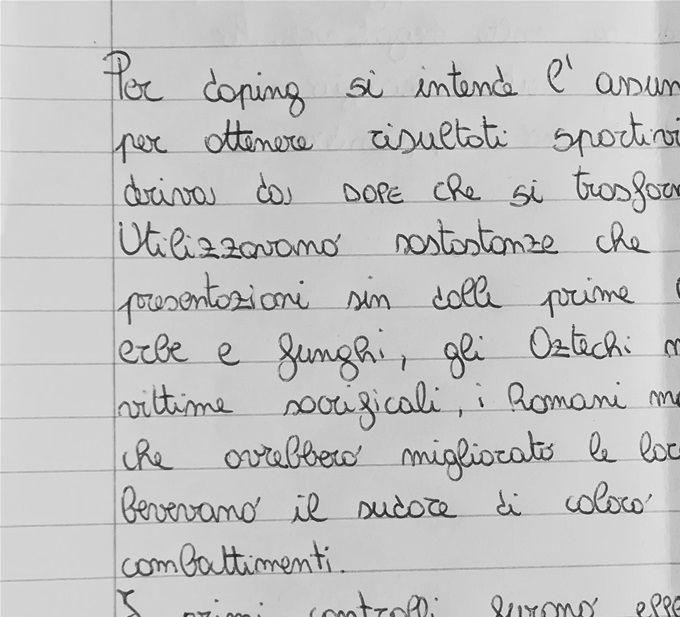 Per doping si intende l'assun
per ottenere risultati sportivi
deriva da DOPE che si trasfor
Utilizzavano sostostanze che
presentazioni sin dalle prime
erbe e funghi, gli Oztechi m
vittime sacrificali, i Romani m
che avrebbero migliorato le lor
bevevano il sudore di coloro
combattimenti.
I primi controlli furono esse